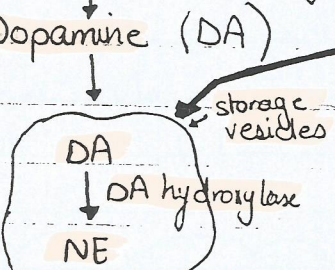 Dopamine (DA)
storage
vesicles
DA
DA hydroxylase
NE